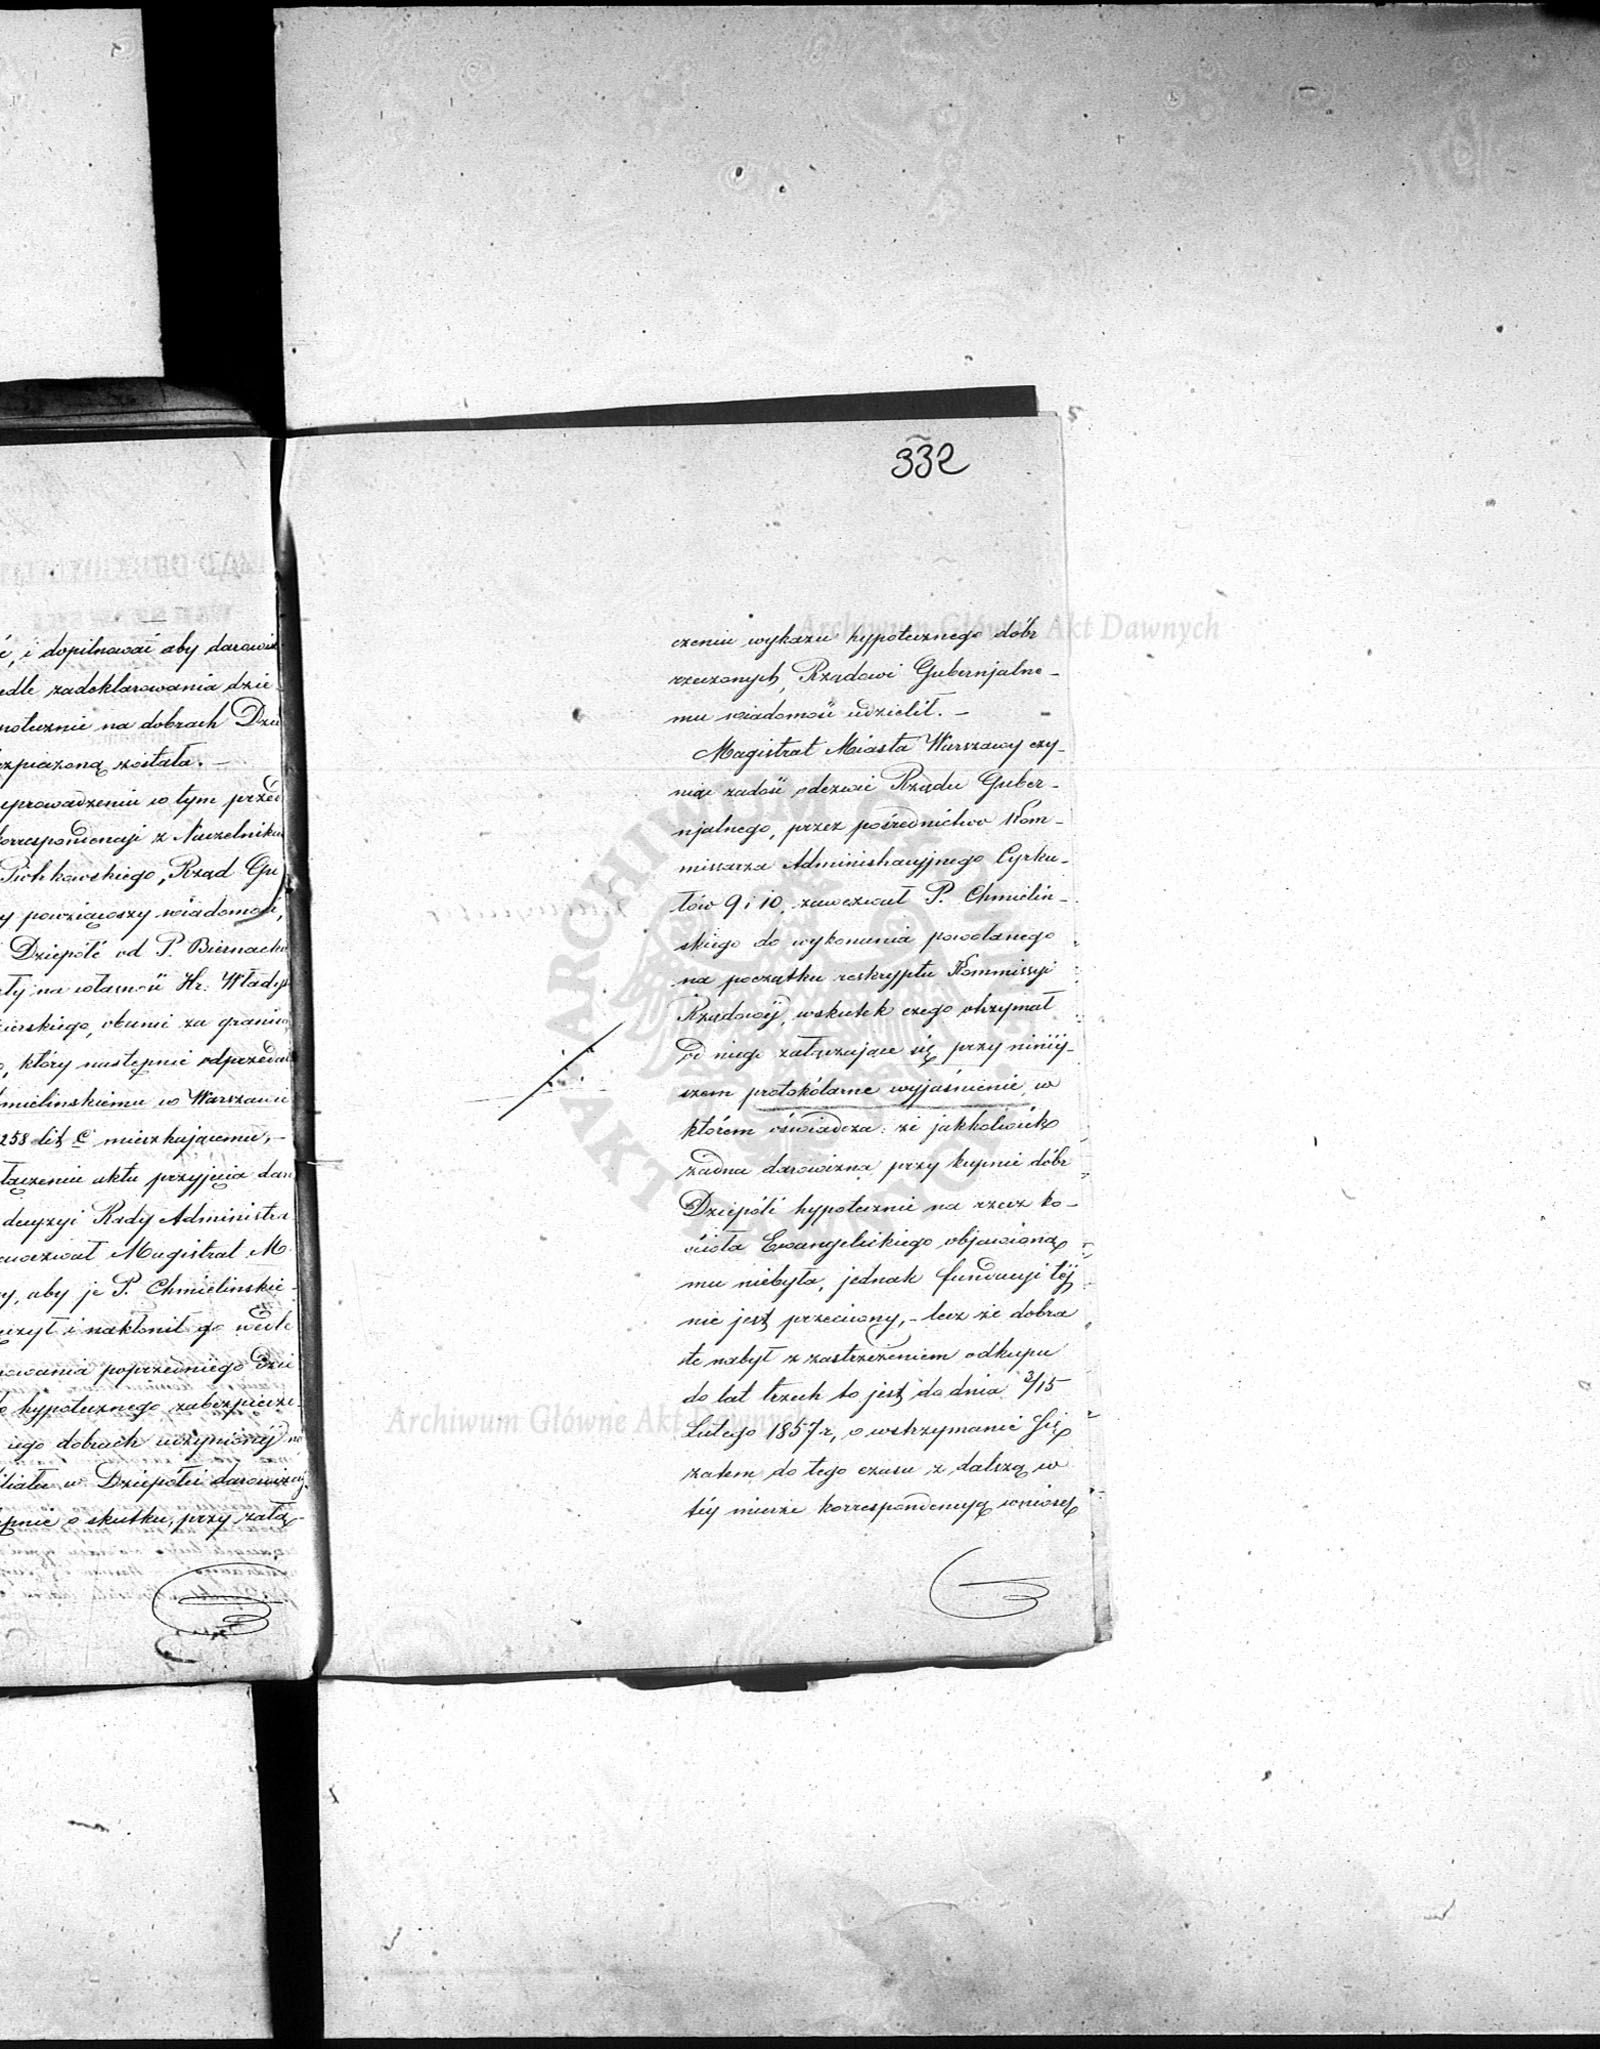 ć, i dopilnować aby darowiz
edle zadeklarowania dzie-
notecznie na dobrach Dzie
ezpieczoną została. —
eprowadzeniu w tym przed
korrespondencyi z Naczelnikie
Piotrkowskiego, Rząd Gu
y powziąwszy wiadomość,
Dziepółć od P. Biernack
ły na własność Hr: Władys
ierskiego, obecnie za granic
, który następnie odprzedał
mielinskiemu w Warszawie
258 lit C mieszkającemu, —
łączeniu aktu przyjęcia dar
decyzyi Rady Administra
wezwał Magistrat M.
y, aby je P. Chmielinskie-
czył i nakłonił go wedle
rowania poprzedniego dzie
o hypotecznego zabezpiecze-
iego dobrach uczynionéj
filiału w Dziepółci darowizny,
ępnie o skutku, przy załą-
332
czeniu wykazu hypotecznego dóbr
rzeczonych, Rządowi Gubernjalne-
mu wiadomość udzielił. —
Magistrat Miasta Warszawy czy-
niąc zadość odezwie Rządu Guber-
njalnego, przez pośrednictwo Kom-
missarza Administracyjnego Cyrku-
łów 9 i 10, zawezwał P. Chmielin-
skiego do wykonania powołanego
na początku reskryptu Kommissyi
Rządowéj, wskutek czego otrzymał
od niego załączające się przy niniéj-
szem protokólarne wyjaśnienie, w
którem oświadcza: że jakkolwiek
żadna darowizna przy kupnie dóbr
Dziepółć hypotecznie na rzecz ko-
ścioła Ewangelickiego objawioną
mu niebyła, jednak fundacyi téj
nie jest przeciwny, — lecz że dobra
te nabył z zastrzeżeniem odkupu
do lat trzech to jest do dnia 3/15
Lutego 1857 r, o wstrzymanie się
zatem do tego czasu z dalszą w
téy mierze korrespondencyą wniósł
Archiwum Główne Akt Dawnych
Archiwum Główne Akt Dawnych
ARCHIWUM GŁÓWNE AKT DAWNYCH